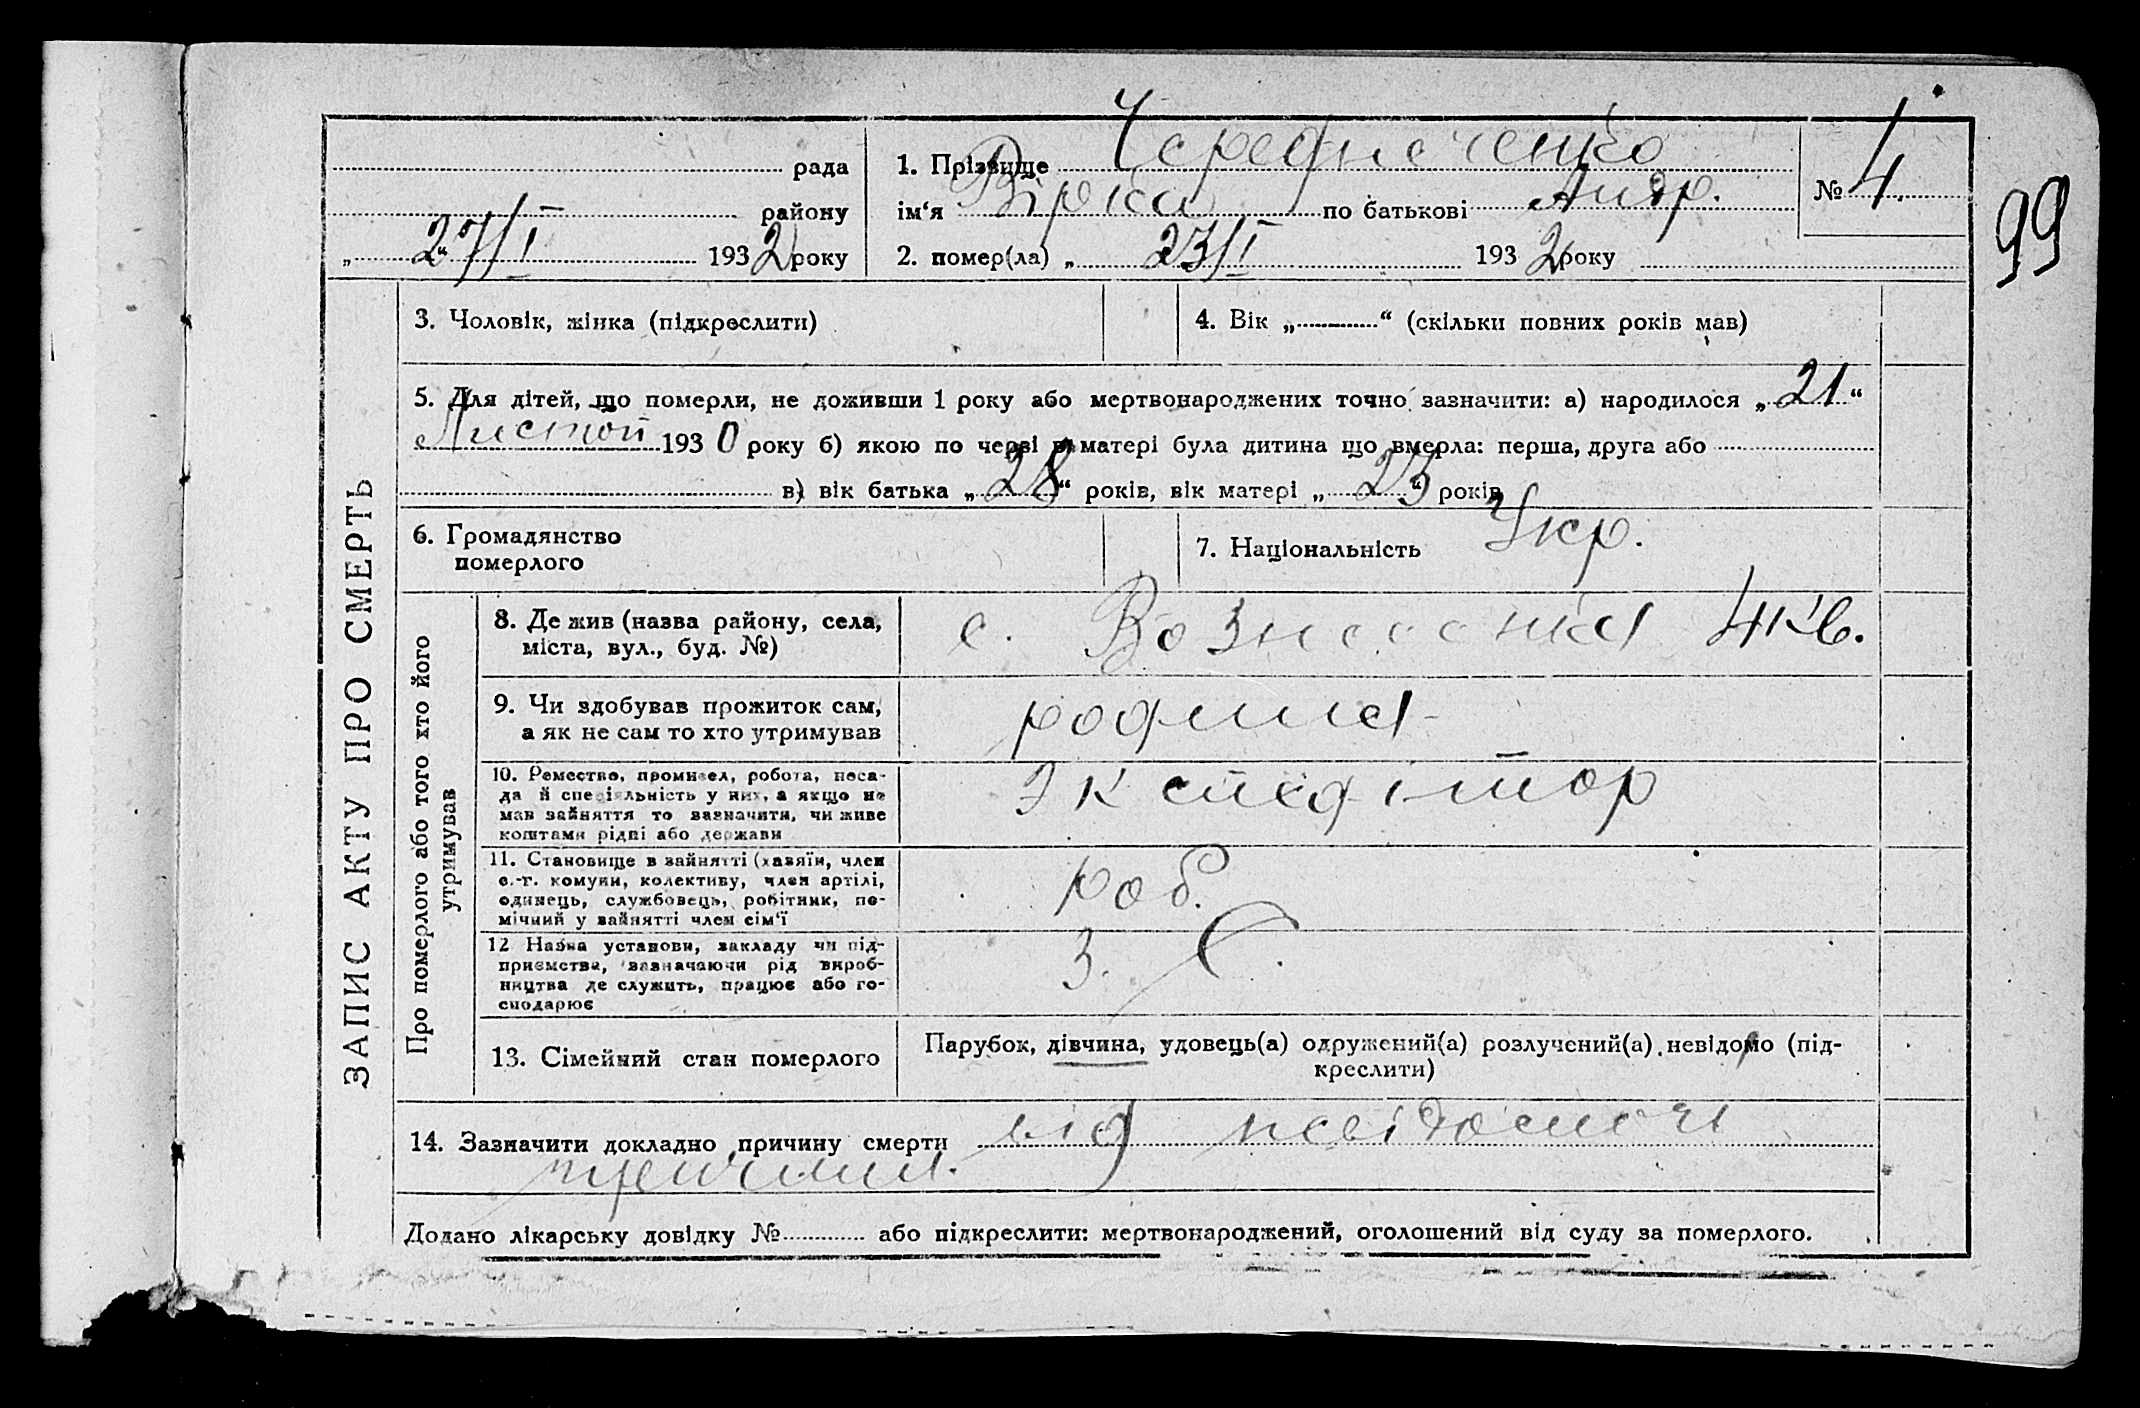 рада
району
„ 27/I 1932 року
1. Прізвище Чередниченко
ім‘я Вірка по батькові Андр.
2. помер(ла) „ 23/I 1932 року
№ 4.
99
ЗАПИС АКТУ ПРО СМЕРТЬ
3. Чоловік, жінка (підкреслити)
4. Вік „ “ (скільки повних років мав)
5. Для дітей, що померли, не доживши 1 року або мертвонароджених точно зазначити: а) народилося „ 21 “
Листоп 1930 року б) якою по черві в матері була дитина що вмерла: перша, друга або
в) вік батька „ 28 “ років, вік матері „ 23 “ років
6. Громадянство
померлого
7. Національність Укр.
Про померлого або того хто його
утримував
8. Де жив (назва району, села,
міста, вул., буд. №)
с. Вознесенка 4 кв.
9. Чи здобував прожиток сам,
а як не сам то хто утримував
родина
10. Ремество, промисел, робота, поса-
да й спеціяльність у них, а якщо не
мав зайняття то зазначити, чи живе
коштами рідні або держави
Экспедітор
11. Становище в зайнятті (хазяїн, член
с.-г. комуни, колективу, член артілі,
одинець, службовець, робітник, по-
мічний у зайнятті член сім‘ї
роб.
12 Назва установи, закладу чи під-
приємства, зазначаючи рід вироб-
ництва де служить, працює або го-
сподарює
З. С.
13. Сімейний стан померлого
Парубок, дівчина, удовець(а) одружений(а) розлучений(а) невідомо (під-
креслити)
14. Зазначити докладно причину смерти від невідомої
причини.
Додано лікарську довідку № або підкреслити: мертвонароджений, оголошений від суду за померлого.